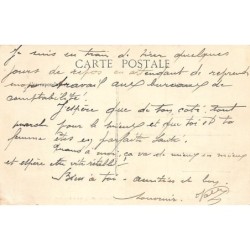 Je suis en train de tirer quelques
CARTE POSTALE
jours de repos en attendant de reprendre
mon travail aux bureaux de
comptabilité.
J'espère que de ton coté tout
marche pour le mieux et que toi et ta
femme êtes en parfaite santé.
Quand à moi, ça va de mieux en mieux
et espère être vite rétabli.
Bien à toi - amitiés de
Souvenir.